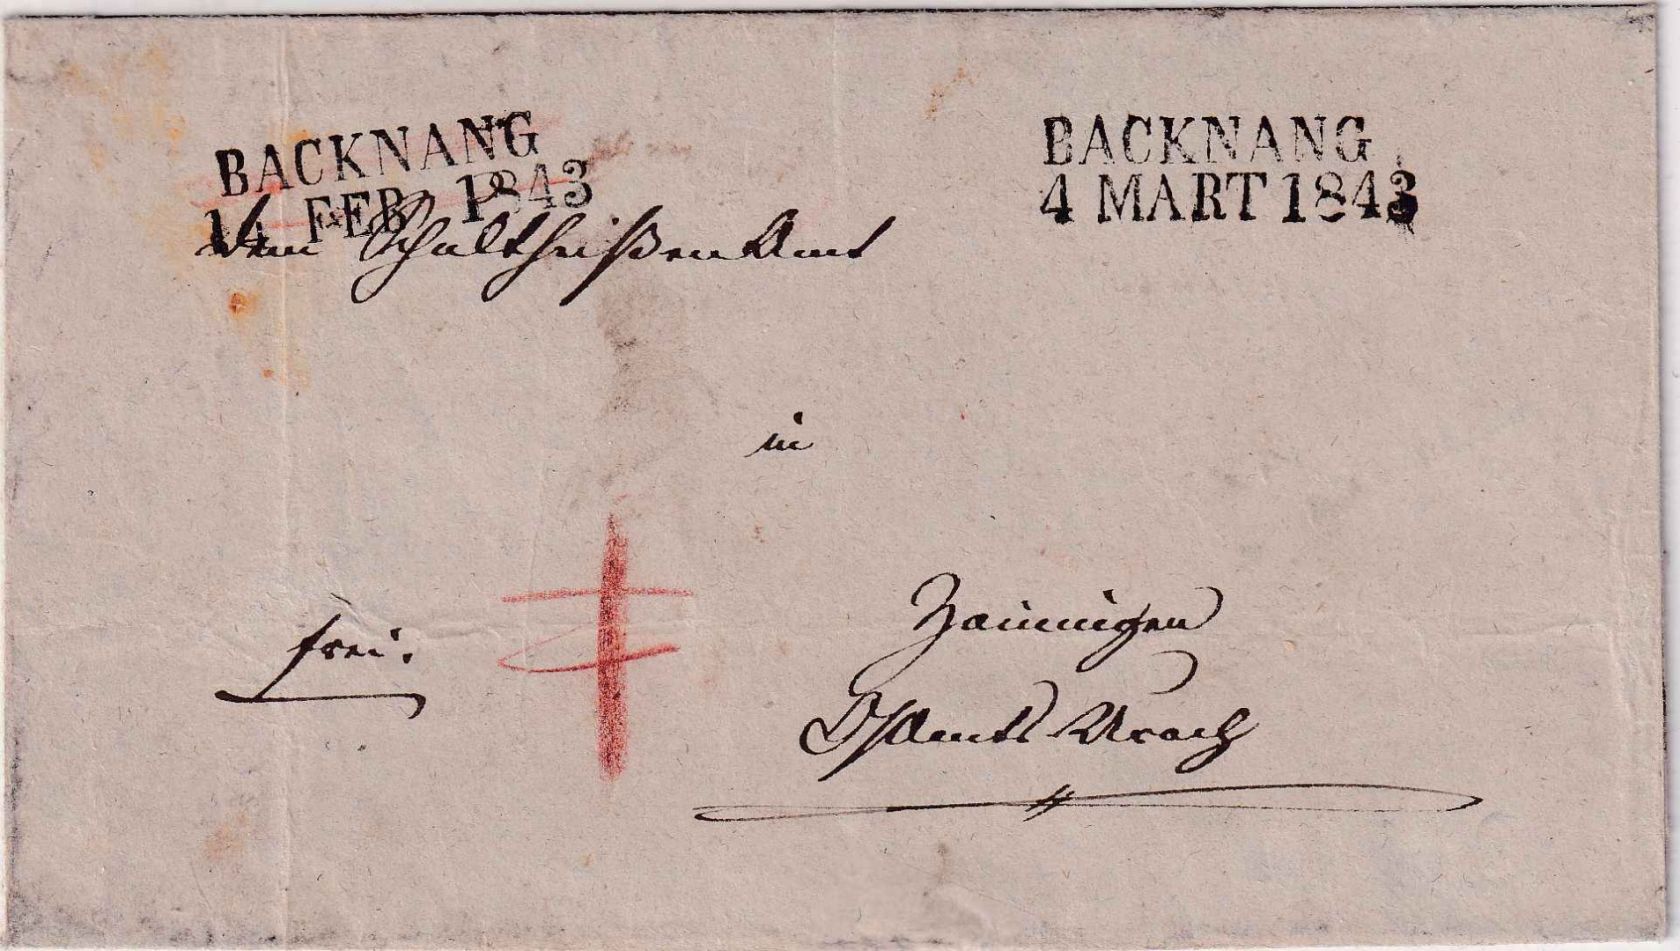 BACKNANG
14 FEB 1843
BACKNANG
4 MART 1843
Dem Schultheißen Amt
in
frei.
Zainingen
OhAmts Urach